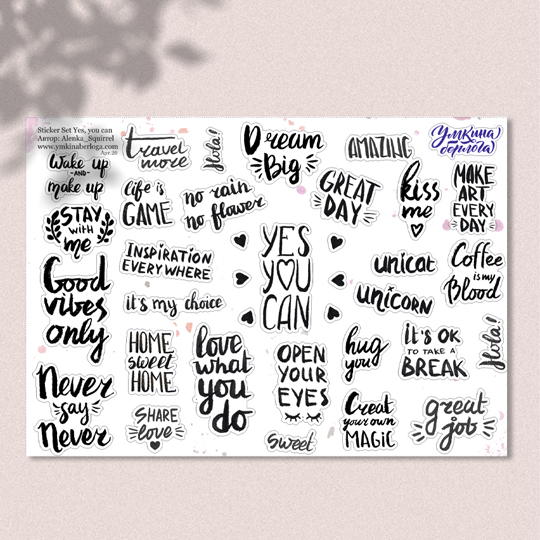 Sticker Set Yes, you can
Автор: Alenka_Squirrel
www.ymkinaberloga.com
Арт.26
Умкина
берлога
Wake up
-AND-
make up
travel
more
Hola!
Dream
Big
AMAZING
life is
GAME
no rain
no flower
GREAT
DAY
kiss
me
MAKE
ART
EVERY
DAY
STAY
with
me
INSPIRATION
EVERYWHERE
YES
YOU
CAN
unicat
unicorn
Coffee
is my
Blood
Good
vibes
only
it's my choice
HOME
sweet
HOME
love
what
you
do
OPEN
YOUR
EYES
hug
you
it's OK
TO TAKE A
BREAK
Hola!
Never
say
Never
SHARE
love
Sweet
Creat
your own
MAGIC
great
job